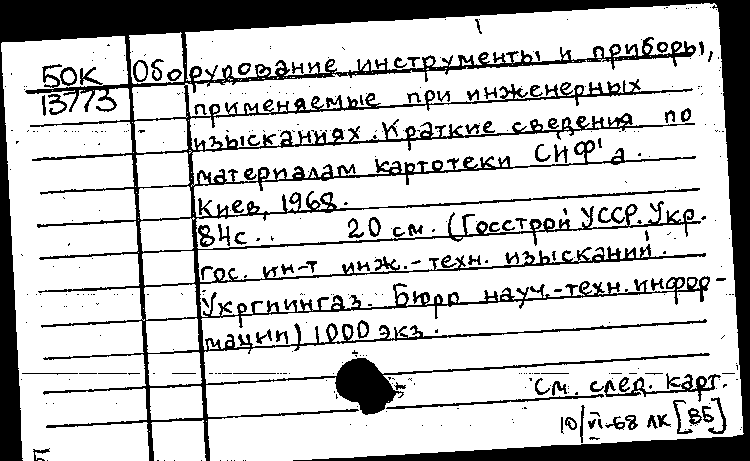 БОК Оборудование, инструменты и приборы,
13773 применяемые при инженерных
изысканиях. Краткие сведения по
материалам картотеки СИФ'а.
Киев, 1968.
84с.. 20 см. (Госстрой УССР. Укр.
гос. ин-т инж.-техн. изысканий.
Укргиингаз. Бюро науч.-техн. инфор-
мации) 1000 экз.
См. след. карт.
10/VI-68 ЛК [ВБ]